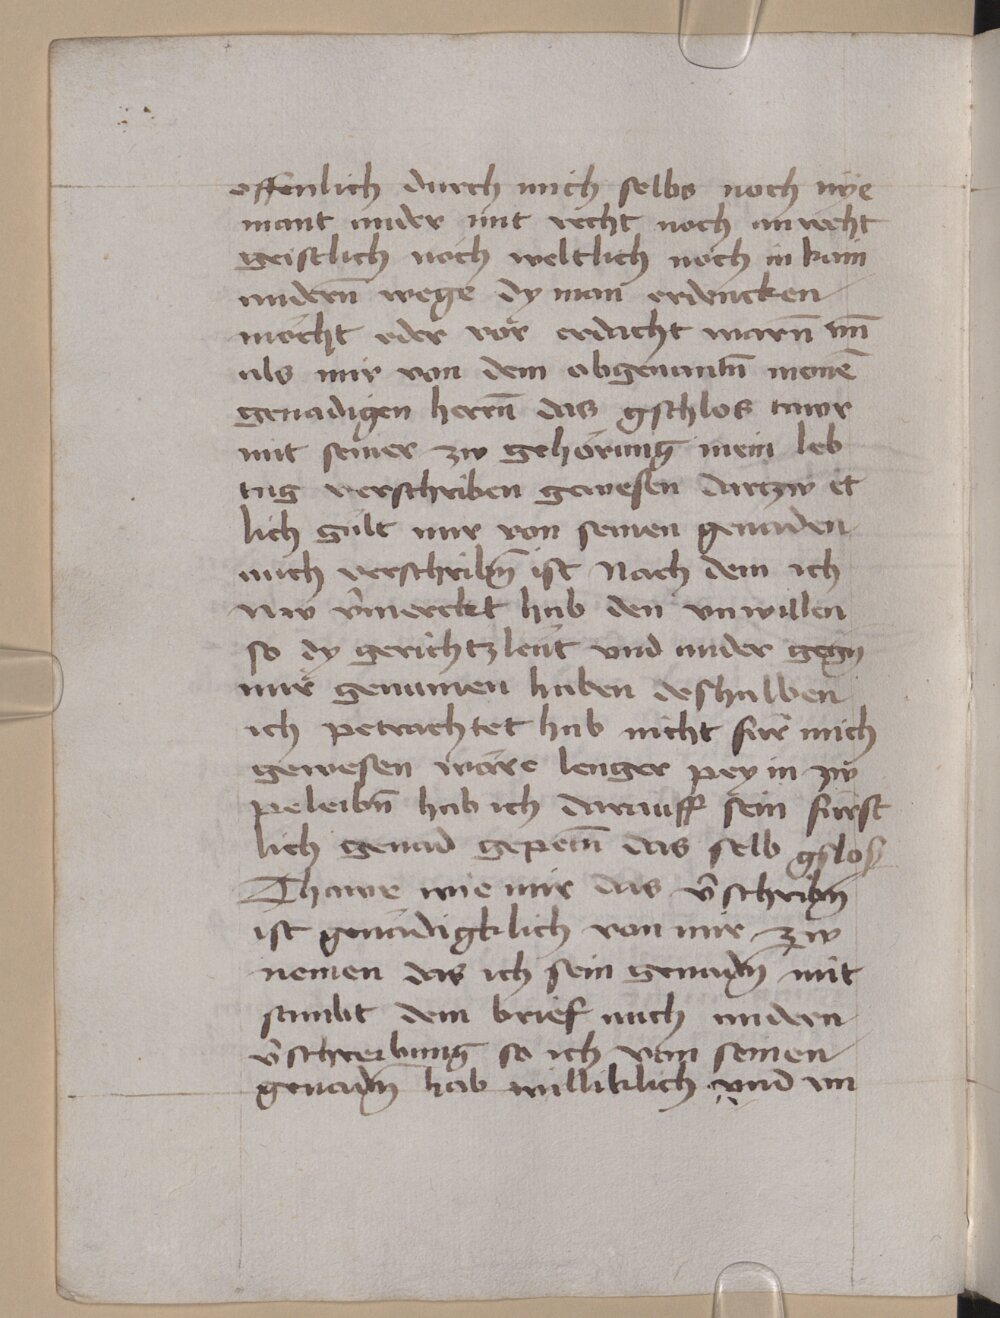 offenlich durch mich selbs noch nye
mant ander mit recht noch an recht
geistlich noch weltlich noch in kain
andern̄ wege dy man erdencken
mocht oder vor erdacht warn̄ vn̄
als mir von dem obgenantn̄ mone̅
genadigen herrn̄ das gschlos tawr
mit seiner zw gehorung mein leb
tag verschriben gewesen dartzw et
lich gült mir von seinen genaden
auch verschribn̄ ist Nach dem ich
nw v̄merckt hab den vnwillen
so dy gerichtzleut vnd ander gegn̄
mir genumen haben deshalben
ich petrachtet hab nicht für mich
gewesen wäre lenger pey in zw
peleibn̄ hab ich darauff sein fürst
lich genad gepetn̄ das selb gslos
Thawr wie mir das v̄schribn̄
ist genädigklich von mir zw
nemen das ich sein genadn̄ mit
sambt dem brief auch andern
v̄schreibung so ich von seinen
genadn̄ hab williklich vnd vn